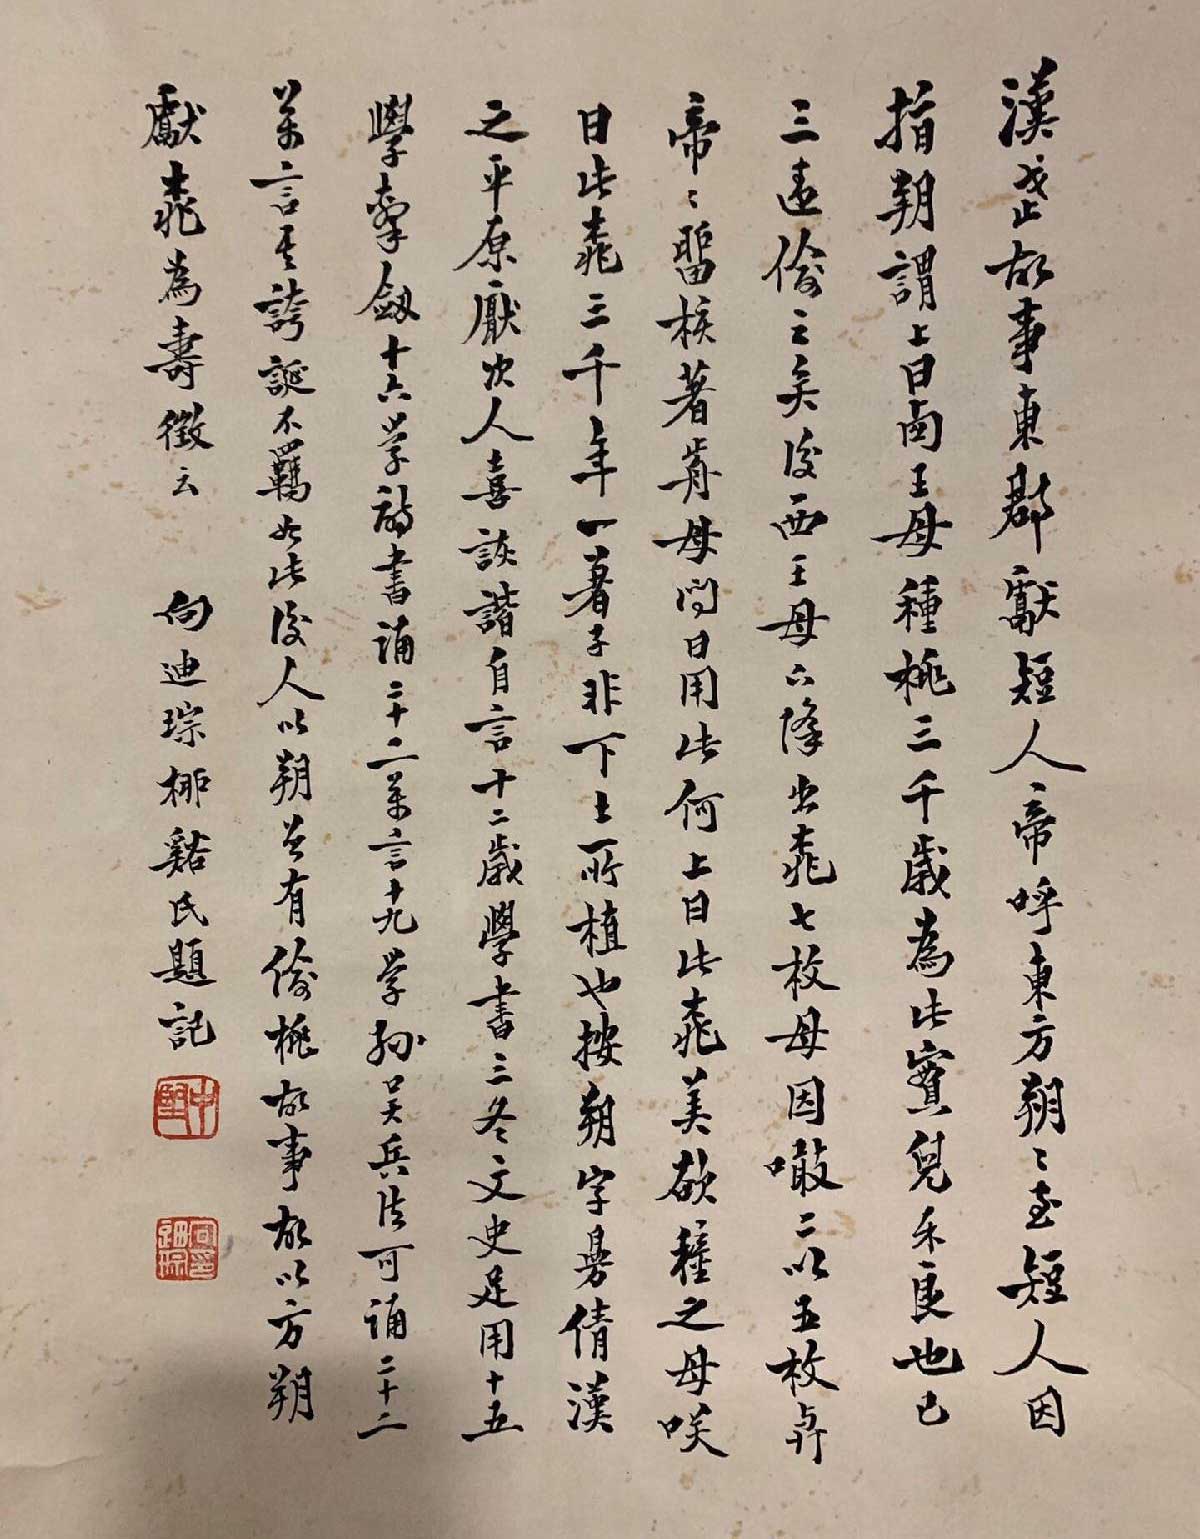 漢武故事東郡獻短人帝呼東方朔〻至短人因
指朔謂上曰西王母種桃三千歲為此實兒不良也已
三遣偷之矣後西王母下降出桃七枚母因噉二以五枚與
帝〻留核著前母問曰用此何上曰此桃美欲種之母咲
曰此桃三千年一著子非下土所植也按朔字曼倩漢
之平原厭次人喜詼諧自言十二歲學書三冬文史足用十五
學擊劒十六学詩書誦二十二萬言十九学孫吴兵法可誦二十二
萬言其誇誕不羈如此後人以朔曾有偷桃故事故以方朔
獻桃為壽徵云 向迪琮栁谿氏題記